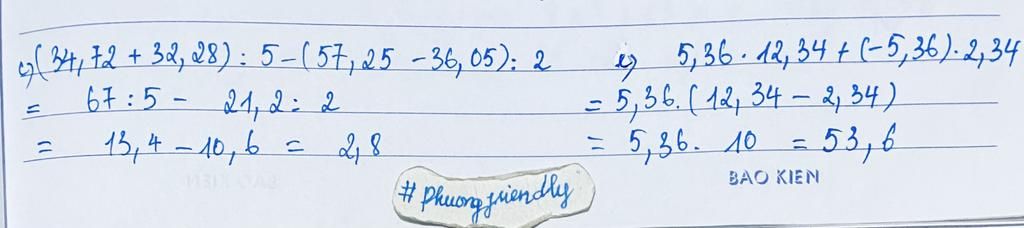 c) (34,72 + 32,28) : 5 - (57,25 - 36,05) : 2
= 67 : 5 - 21,2 : 2
= 13,4 - 10,6 = 2,8
e) 5,36 . 12,34 + (-5,36) . 2,34
= 5,36 . (12,34 - 2,34)
= 5,36 . 10 = 53,6
BAO KIEN
#Phuongfriendly